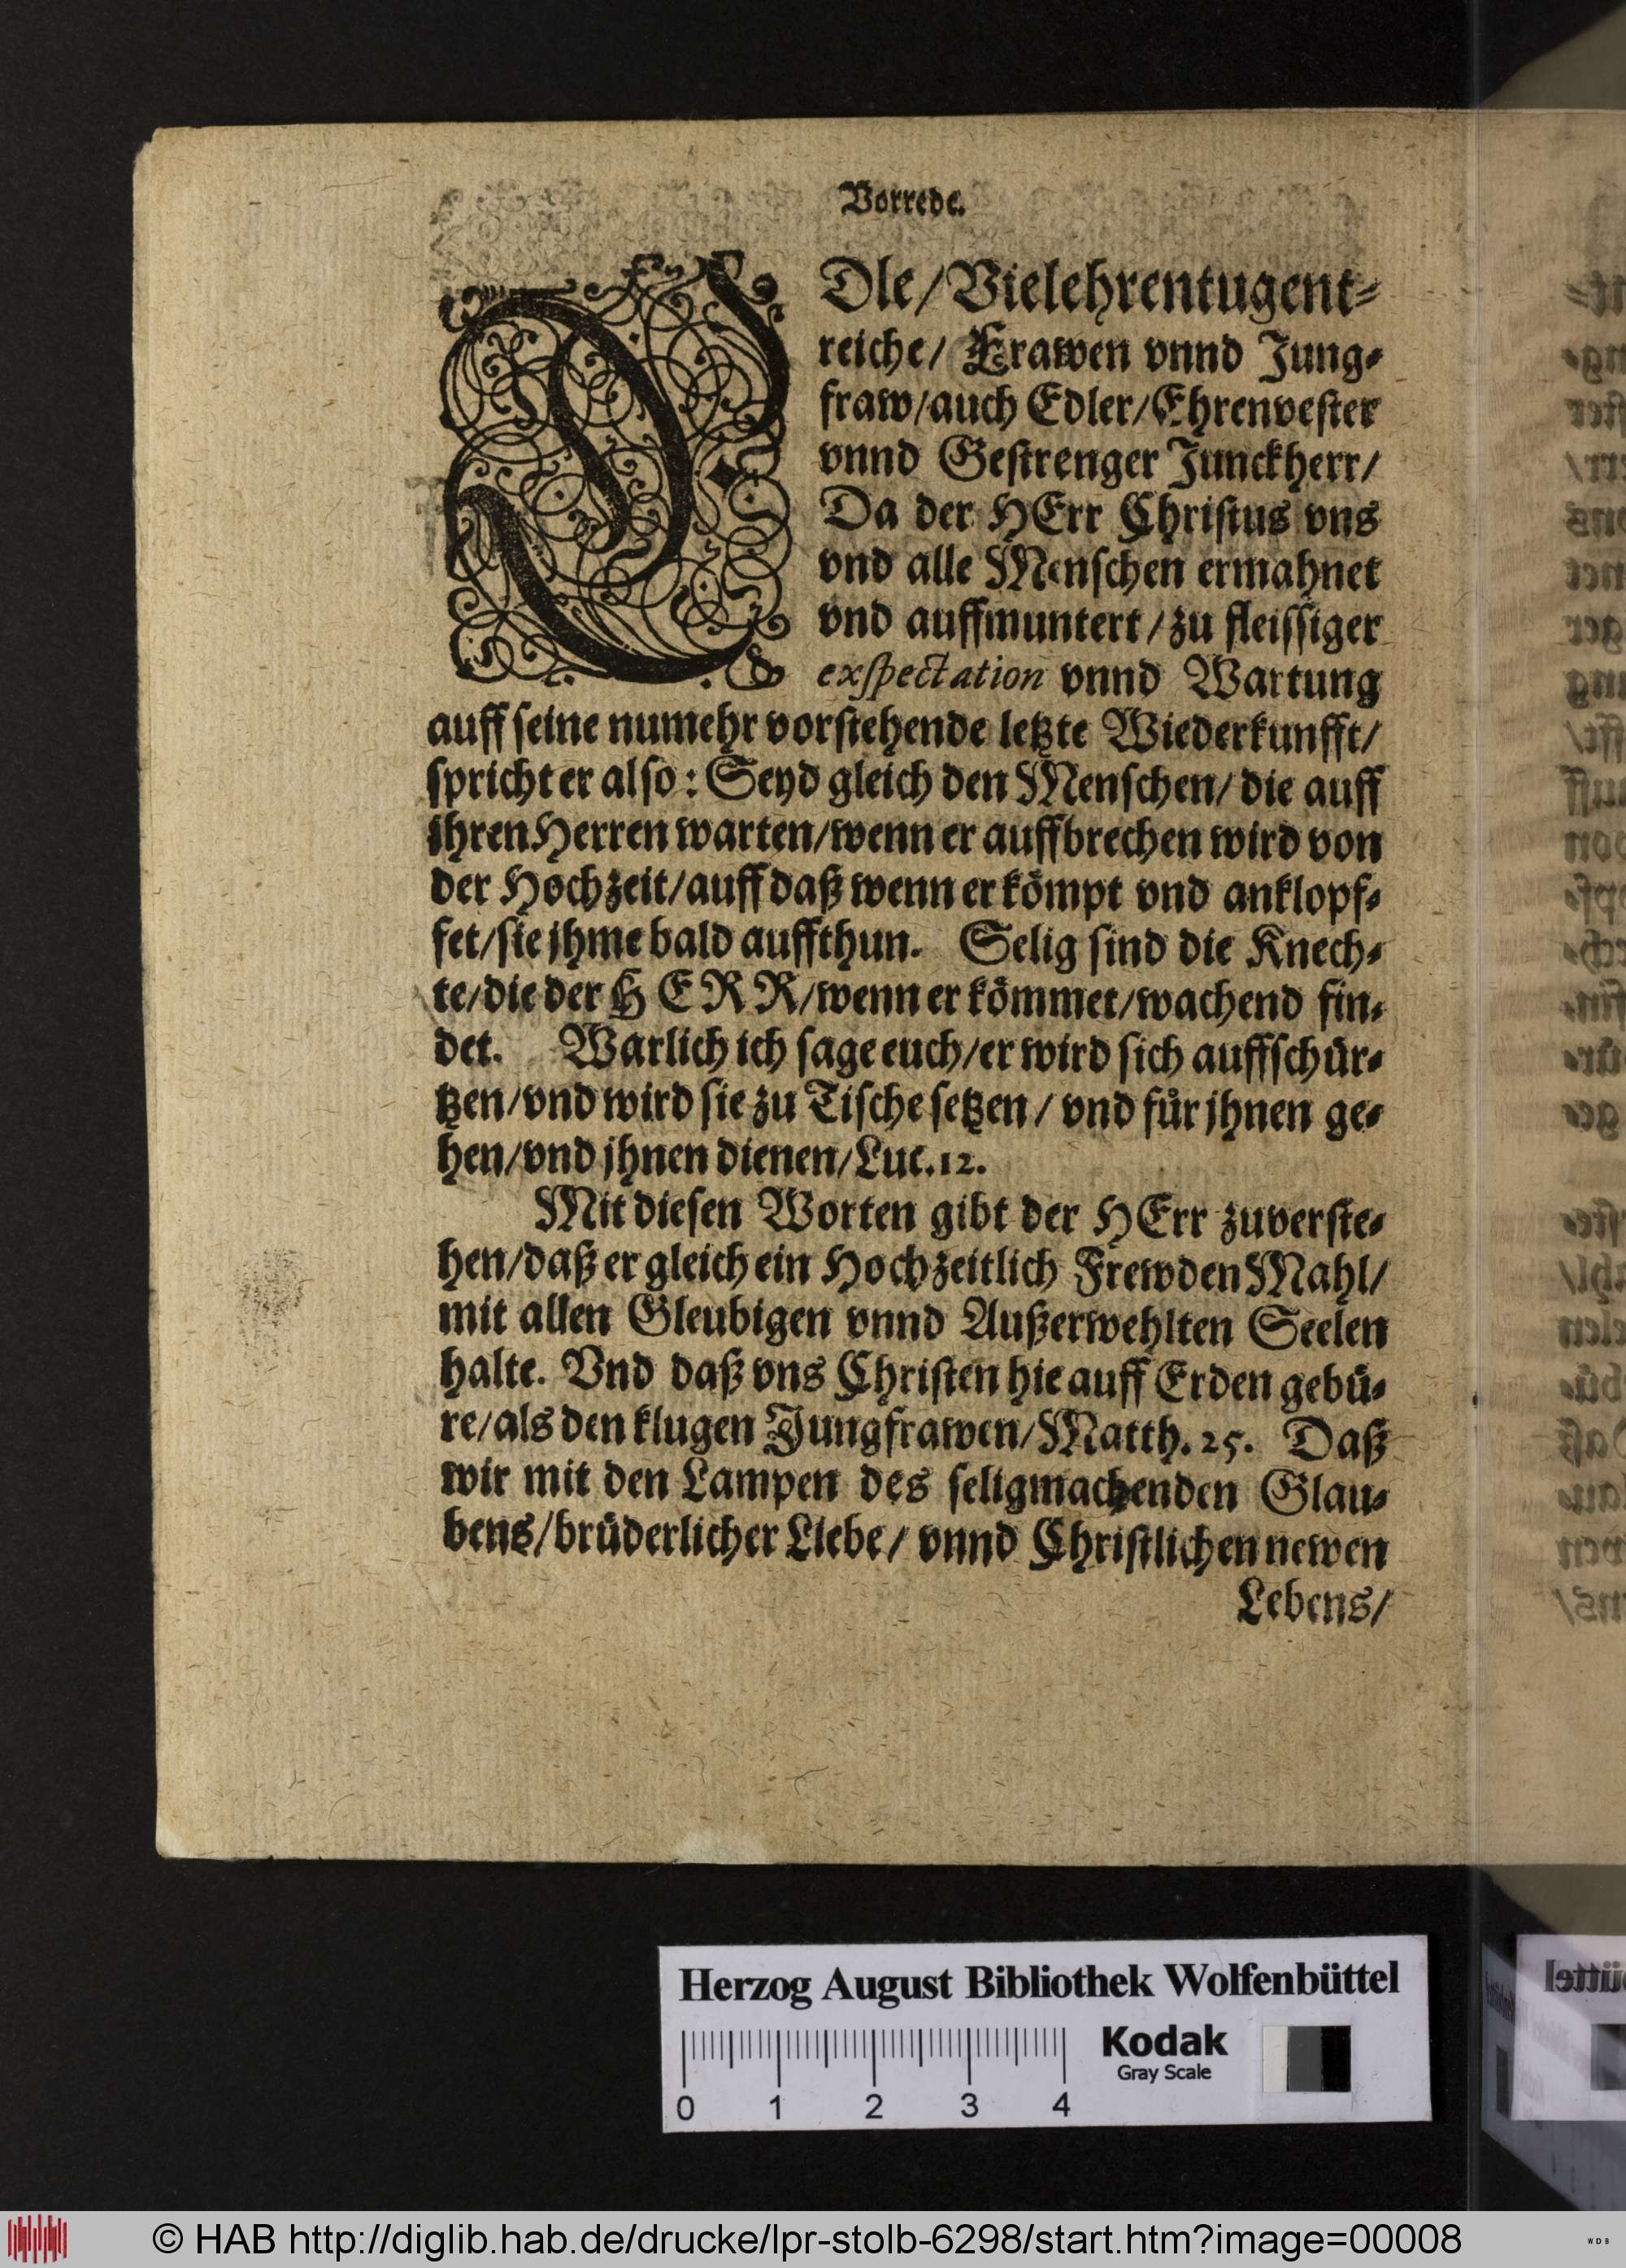 Vorrede.
EDle/Vielehrentugent⸗
reiche/ Frawen vnnd Jung⸗
fraw/auch Edler/Ehrenvester
vnnd Gestrenger Junckherr/
Da der HErr Christus vns
vnd alle Menschen ermahnet
vnd auffmuntert/zu fleissiger
exspectation vnnd Wartung
auff seine numehr vorstehende letzte Wiederkunfft/
spricht er also: Seyd gleich den Menschen/ die auff
jhren Herren warten/wenn er auffbrechen wird von
der Hochzeit/auff daß wenn er kömpt vnd anklopf⸗
fet/sie jhme bald auffthun. Selig sind die Knech⸗
te/die der HERR/wenn er kömmet/wachend fin⸗
det. Warlich ich sage euch/er wird sich auffschür⸗
tzen/vnd wird sie zu Tische setzen/ vnd für jhnen ge⸗
hen/vnd jhnen dienen/Luc.12.
Mit diesen Worten gibt der HErr zuverste⸗
hen/daß er gleich ein Hochzeitlich FrewdenMahl/
mit allen Gleubigen vnnd Außerwehlten Seelen
halte. Vnd daß vns Christen hie auff Erden gebü⸗
re/als den klugen Jungfrawen/Matth. 25. Daß
wir mit den Lampen des seligmachenden Glau⸗
bens/brüderlicher Liebe/ vnnd Christlichen newen
Lebens/
Herzog August Bibliothek Wolfenbüttel
Kodak
Gray Scale
0 1 2 3 4
© HAB http://diglib.hab.de/drucke/lpr-stolb-6298/start.htm?image=00008
WDB